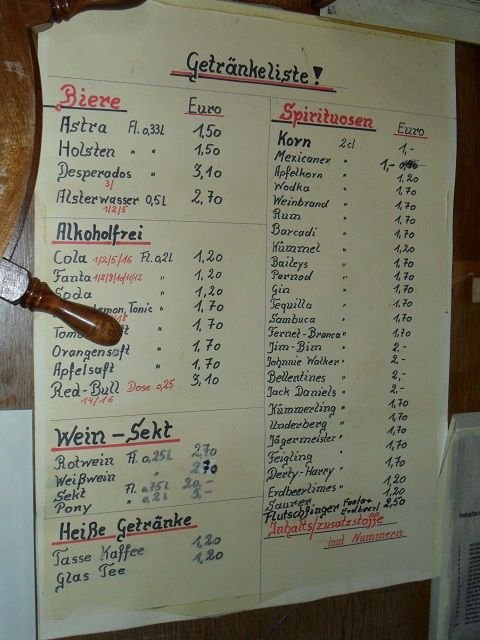 Getränkeliste!
Biere Euro
Astra Fl. 0,33l 1,50
Holsten " " 1,50
Desperados " " 3,10
3/
Alsterwasser 0,5l 2,70
1/2/5
Alkoholfrei
Cola 1/2/5/16 Fl. 0,2l 1,20
Fanta 1/2/3/10/11/12 " 1,20
Soda " 1,20
Lemon, Tonic " 1,70
" 1,70
Orangensaft " 1,70
Apfelsaft " 1,70
Red-Bull Dose 0,25 3,10
14/16
Wein-Sekt
Rotwein Fl. 0,25l 2,70
Weißwein " 2,70
Sekt Fl. 0,75l 20,-
Pony " 0,2l 2,-
Heiße Getränke
Tasse Kaffee 1,20
Glas Tee 1,20
Spirituosen Euro
Korn 2cl 1,-
Mexicaner " 1,-
Apfelkorn " 1,20
Wodka " 1,70
Weinbrand " 1,70
Rum " 1,70
Barcadi " 1,70
Kümmel " 1,20
Baileys " 1,70
Pernod " 1,70
Gin " 1,70
Tequilla " 1,70
Sambuca " 1,70
Fernet-Branca " 1,70
Jim-Bim " 2,-
Johnnie Walker " 2,-
Bellentines " 2,-
Jack Daniels " 2,-
Kümmerling " 1,70
Underberg " 1,70
Jägermeister " 1,70
Feigling " 1,70
Derty-Harry " 1,70
Erdbeerlimes " 1,20
Saurer " 1,20
Flutschfinger Fanta + Erdbeerl 2,50
Inhalts/zusatzstoffe
laut Nummern